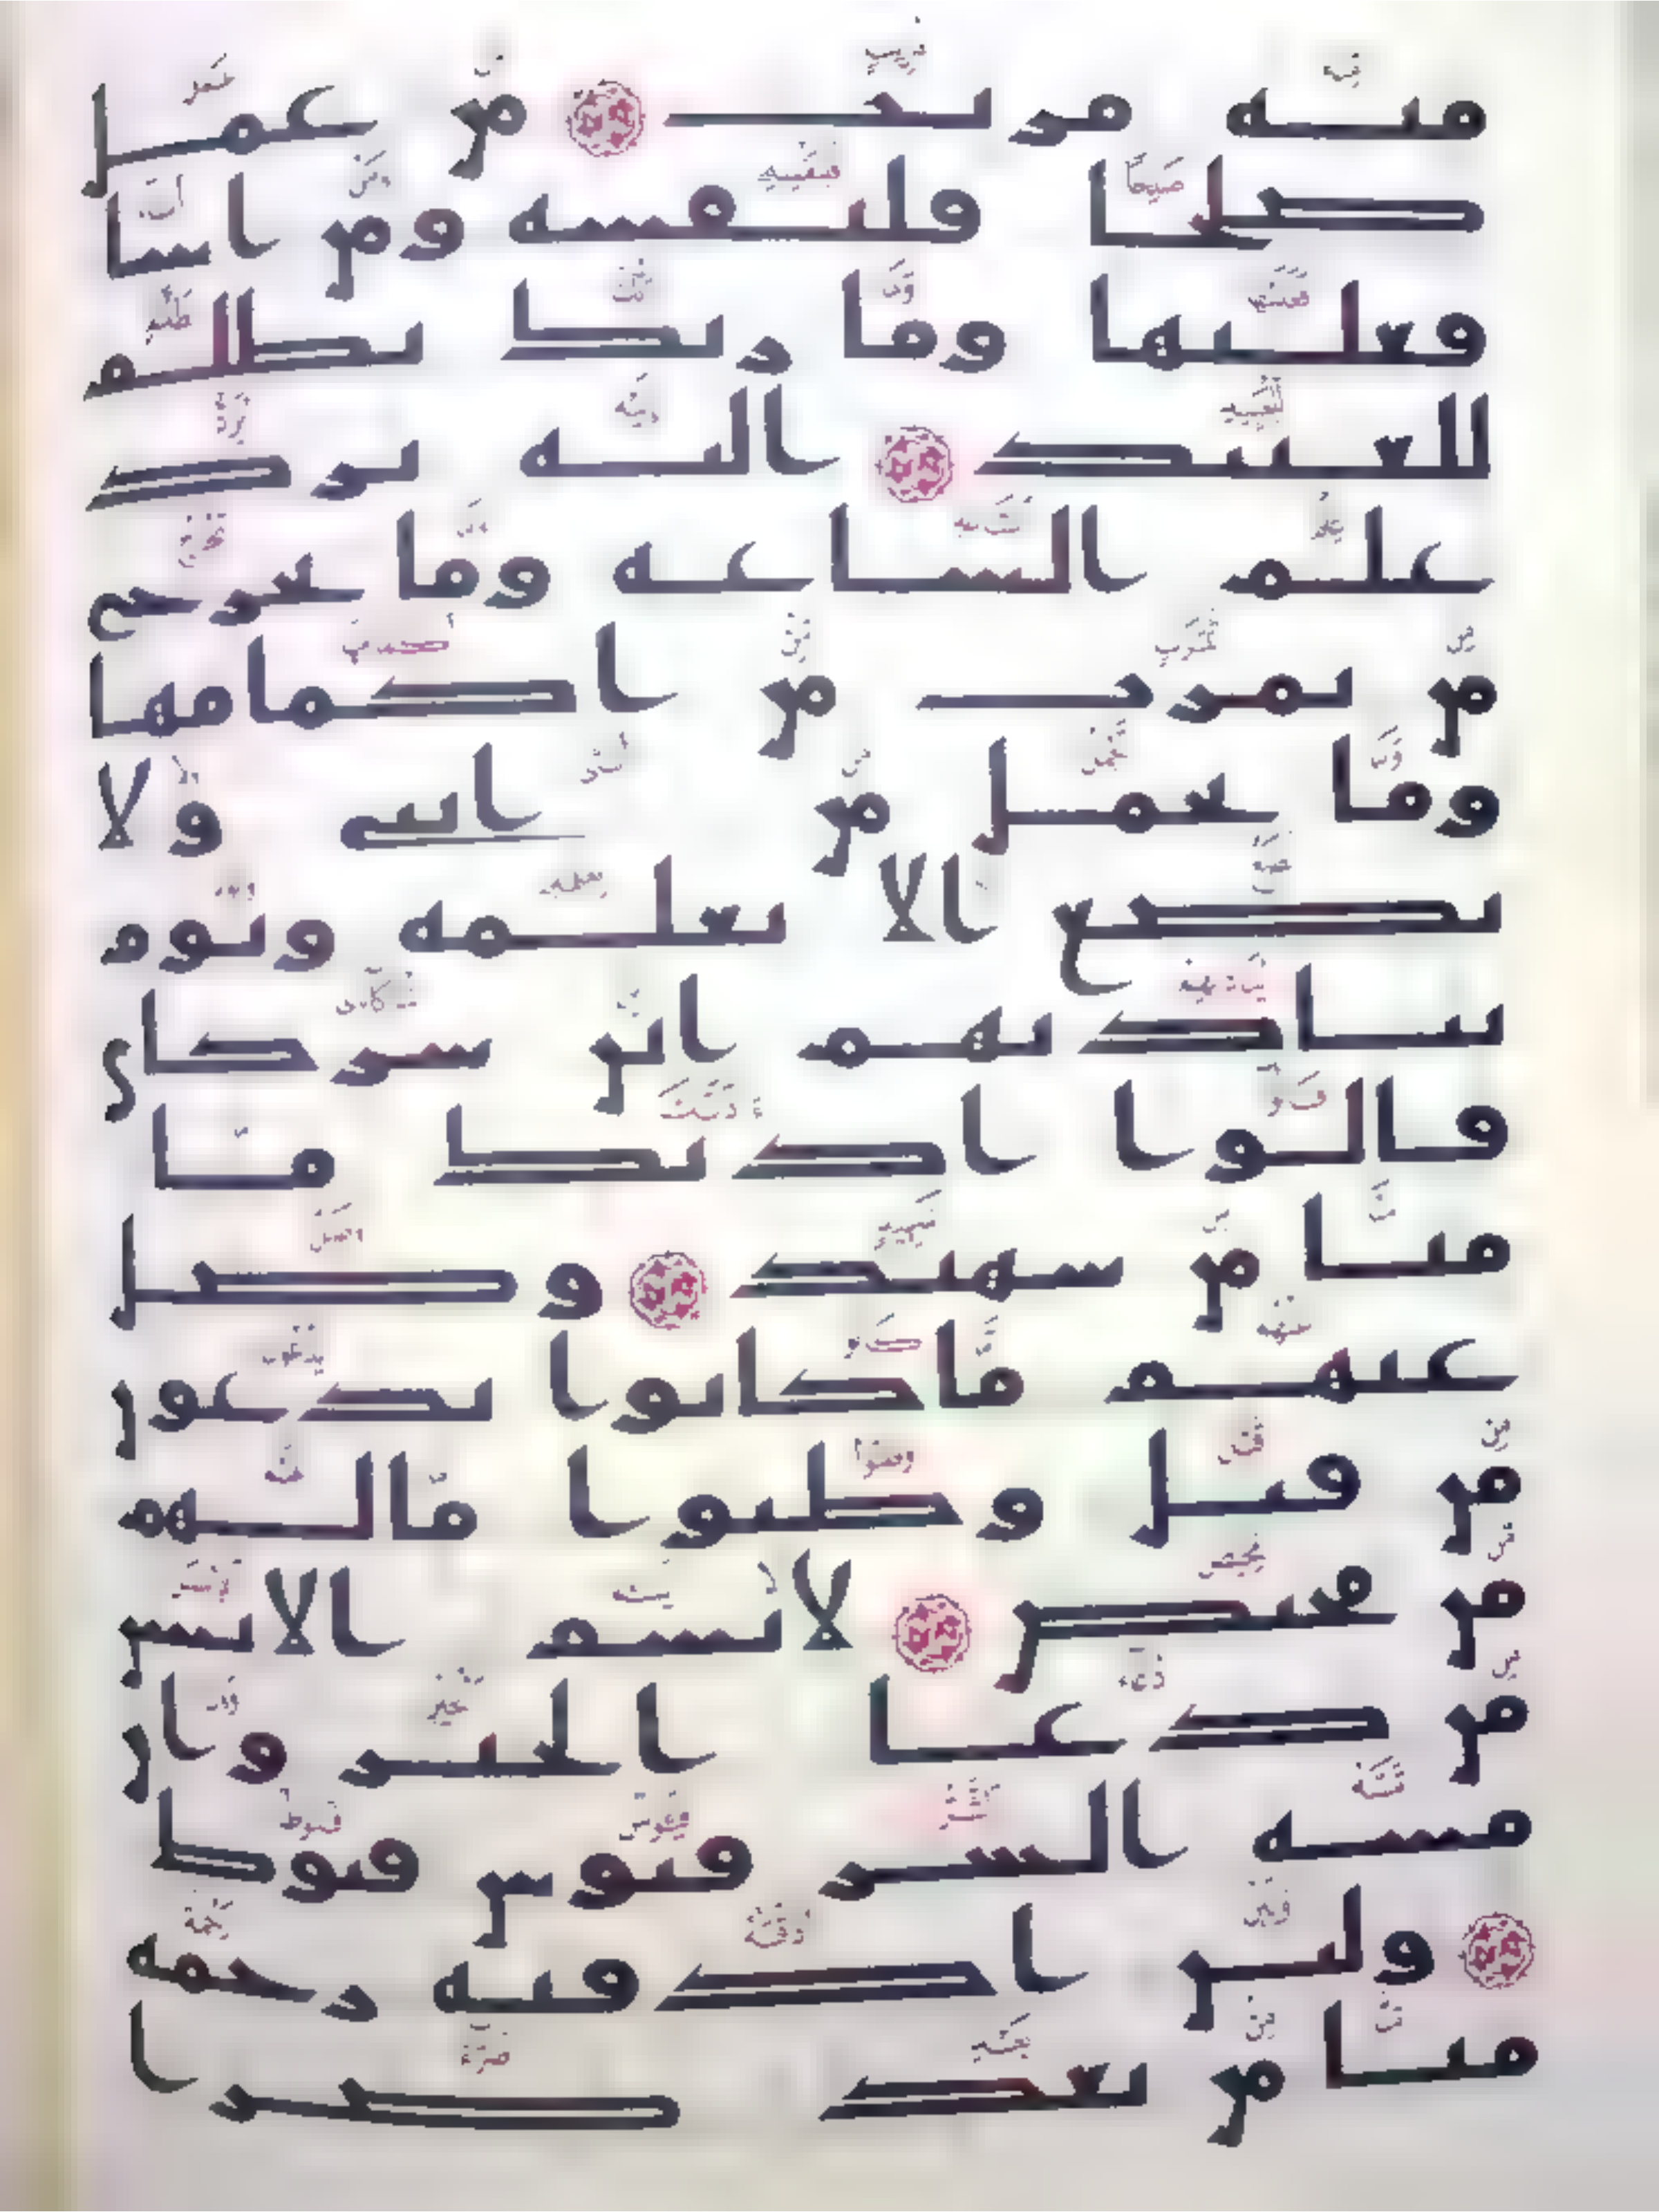 منه مريب ۝ من عمل
صلحا فلنفسه ومن اسا
فعليها وما ربك بظلم
للعبيد ۝ اليه يرد
علم الساعه وما تخرج
من ثمرت من اكمامها
وما تحمل من انثى ولا
تضع الا بعلمه ويوم
يناديهم اين شركاى
قالوا اذنك ما
منا من شهيد ۝ وضل
عنهم ما كانوا يدعون
من قبل وظنوا ما لهم
من محيص ۝ لا يسم الانسن
من دعا الخير وان
مسه الشر فيوس قنوط
۝ ولين اذقنه رحمه
منا من بعد ضرا